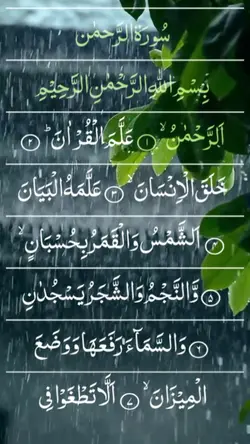 سُورَةُ الرَّحْمٰن
بِسْمِ اللهِ الرَّحْمٰنِ الرَّحِيْمِ
اَلرَّحْمٰنُ ۙ ١ عَلَّمَ الْقُرْاٰنَ ؕ ٢
خَلَقَ الْاِنْسَانَ ۙ ٣ عَلَّمَهُ الْبَيَانَ
٤ اَلشَّمْسُ وَالْقَمَرُ بِحُسْبَانٍ ۙ
٥ وَّالنَّجْمُ وَالشَّجَرُ يَسْجُدٰنِ
٦ وَالسَّمَآءَ رَفَعَهَا وَوَضَعَ
الْمِيْزَانَ ۙ ٧ اَلَّا تَطْغَوْا فِى